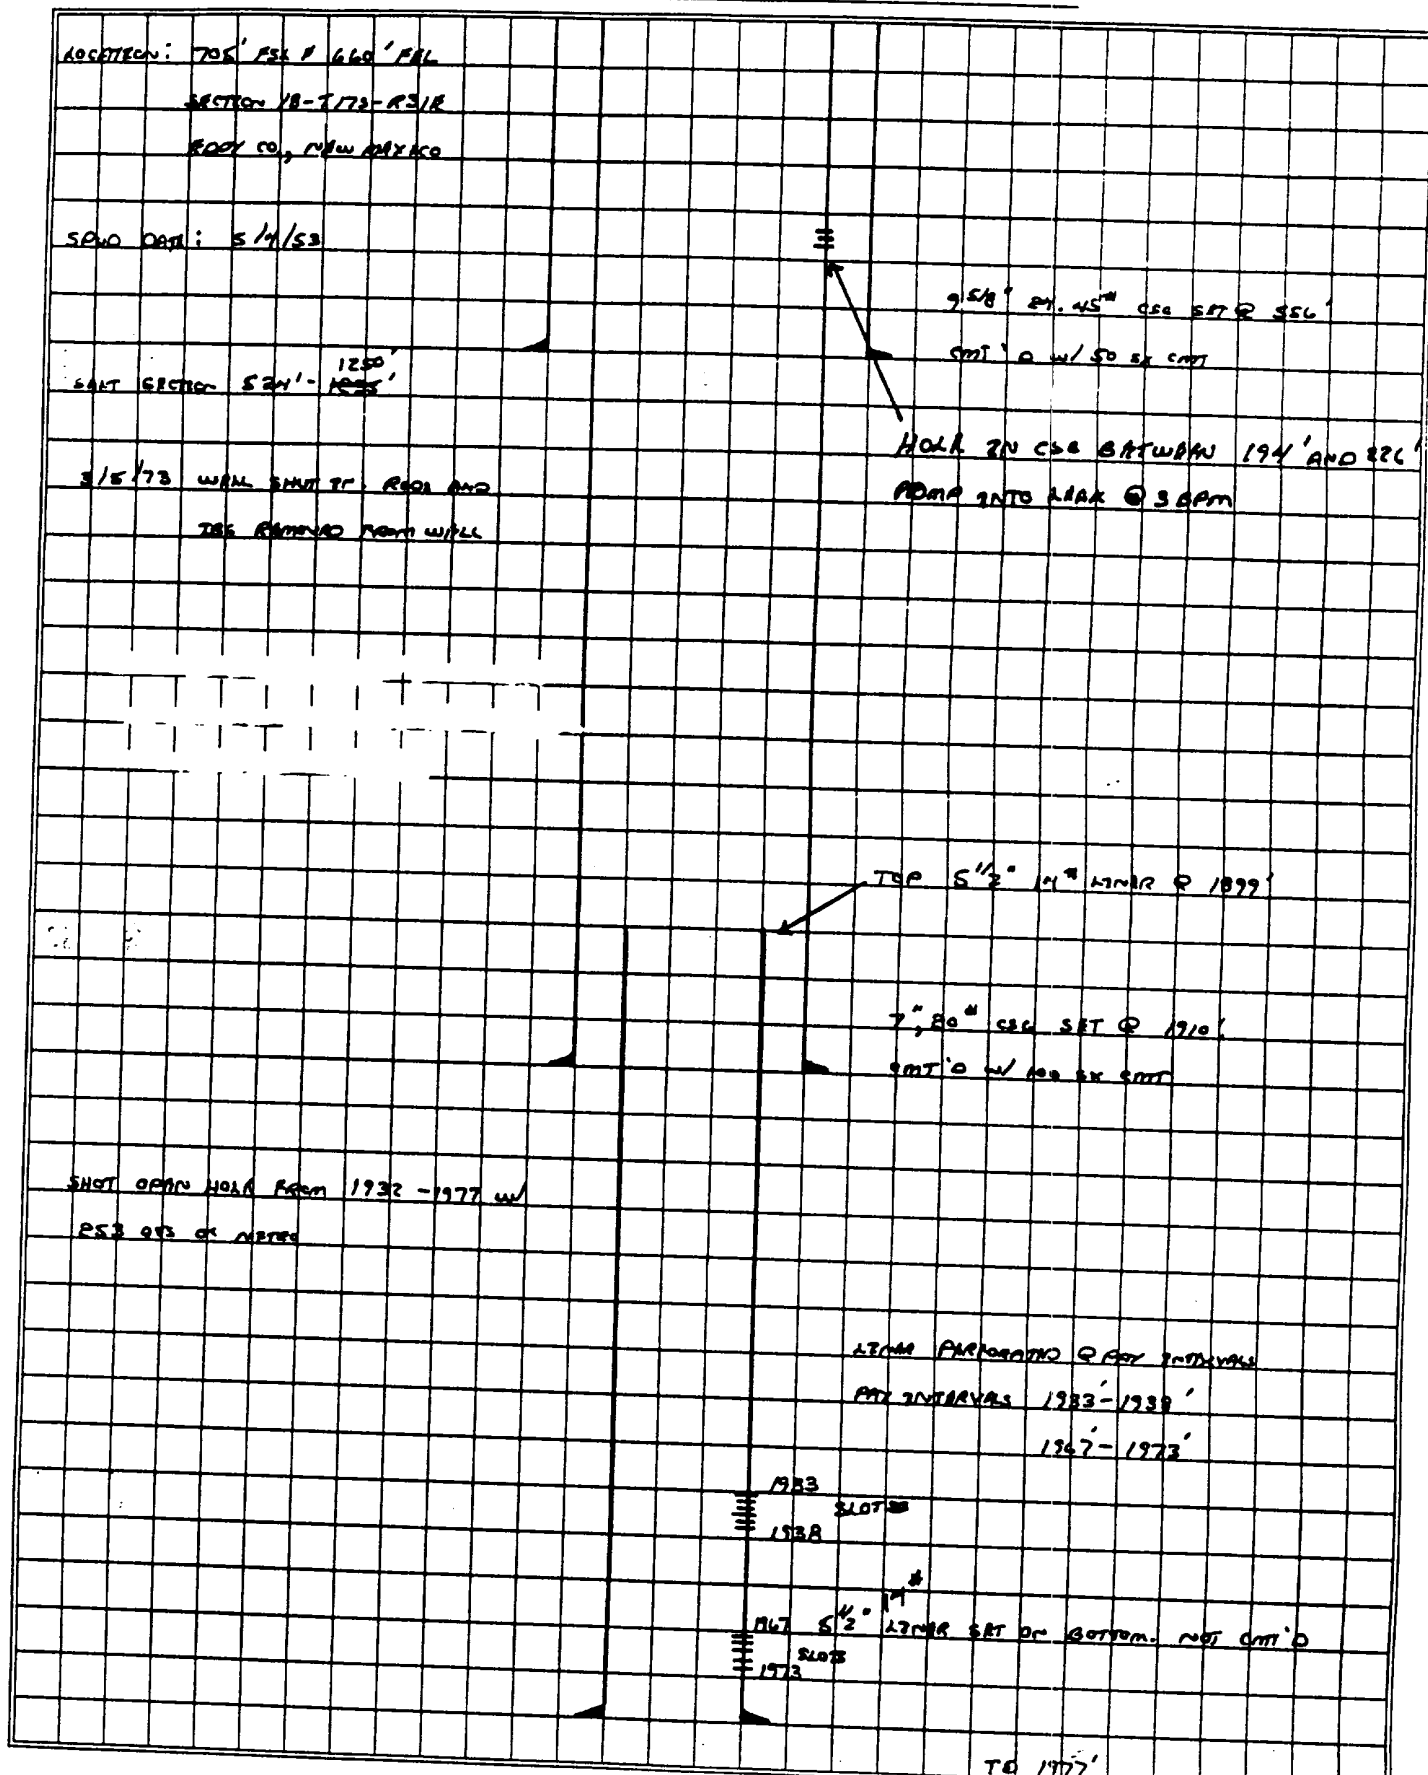 LOCATION: 705' FSL & 660' FEL
SECTION 18-T17S-R31E
EDDY CO., NEW MEXICO
SPUD DATE: 5/4/53
9 5/8" CSG SET @ 556'
CMT'D W/ 50 SX CMT
1250'
SALT SECTION 524'-
HOLE IN CSG BETWEEN 194' AND 226'
PUMP INTO LEAK @ 3 BPM
3/5/73 WELL SHUT IN. RODS AND
TBG REMOVED FROM WELL
TOP 5 1/2" 14# LINER @ 1899'
7", 20# CSG SET @ 1910'
CMT'D W/ 100 SX CMT
SHOT OPEN HOLE FROM 1932-1977 W/
253 QTS OF NITRO
LINER PERFORATED @ PAY INTERVALS
PAY INTERVALS 1933'-1938'
1967'-1973'
1933
SLOTS
1938
14#
1967 5 1/2" LINER SET ON BOTTOM. NOT CMT'D
SLOTS
1973
TD 1977'